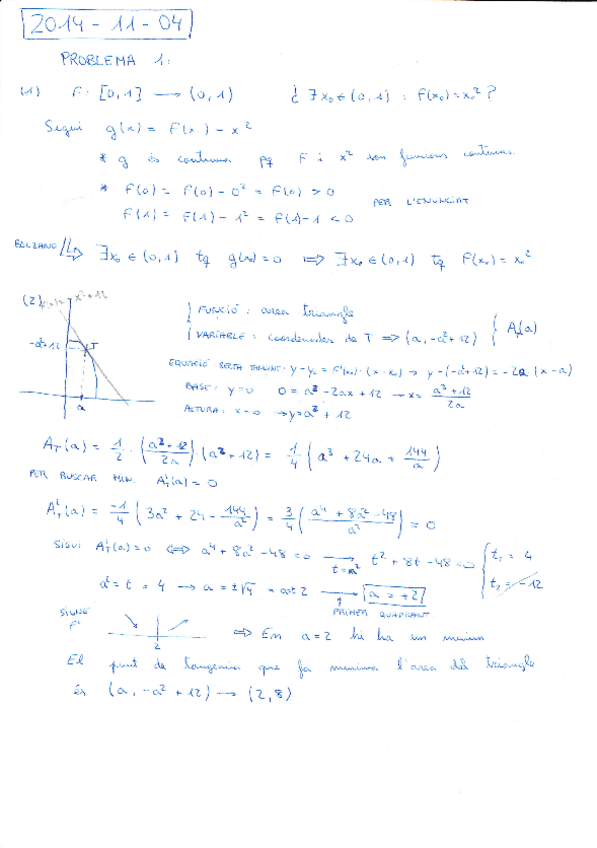 2014-11-04
PROBLEMA 1:
(1) F: [0,1] → (0,1) ¿∃x₀∈(0,1) : F(x₀)=x₀²?
Sigui g(x) = F(x) - x²
* g és contínua pq F i x² son funcions contínues.
* F(0) = F(0) - 0² = F(0) > 0
PER L'ENUNCIAT
F(1) = F(1) - 1² = F(1)-1 < 0
BOLZANO ⇒ ∃x₀∈(0,1) tq g(x₀)=0 ⇒ ∃x₀∈(0,1) tq F(x₀)=x₀²
(2) x²+12
FUNCIÓ: area triangle
-a²+12 T
VARIABLE: coordenades de T ⇒ (a, -a²+12) { A_T(a)
EQUACIÓ RECTA TANGENT: y-y₀ = F'(x₀)·(x-x₀) → y-(-a²+12) = -2a (x-a)
BASE: y=0 0 = a²-2ax+12 → x = (a²+12)/2a
a
ALTURA: x=0 → y=a²+12
A_T(a) = 1/2 · ((a²+12)/2a) · (a²+12) = 1/4 (a³ + 24a + 144/a)
PER BUSCAR MIN. A'_T(a) = 0
A'_T(a) = -1/4 (3a² + 24 - 144/a²) = 3/4 ((a⁴ + 8a² - 48)/a²) = 0
Sigui A'_T(a)=0 ⇔ a⁴+8a²-48=0 → t=a² t²+8t-48=0 { t₁=4
t₂=-12
a²=t=4 → a=±√4 = ±2 → a=+2
PRIMER QUADRANT
SIGNE
F'
2
⇒ En a=2 hi ha un mínim
El punt de tangencia que fa mínima l'area del triangle
és (a, -a²+12) → (2,8)